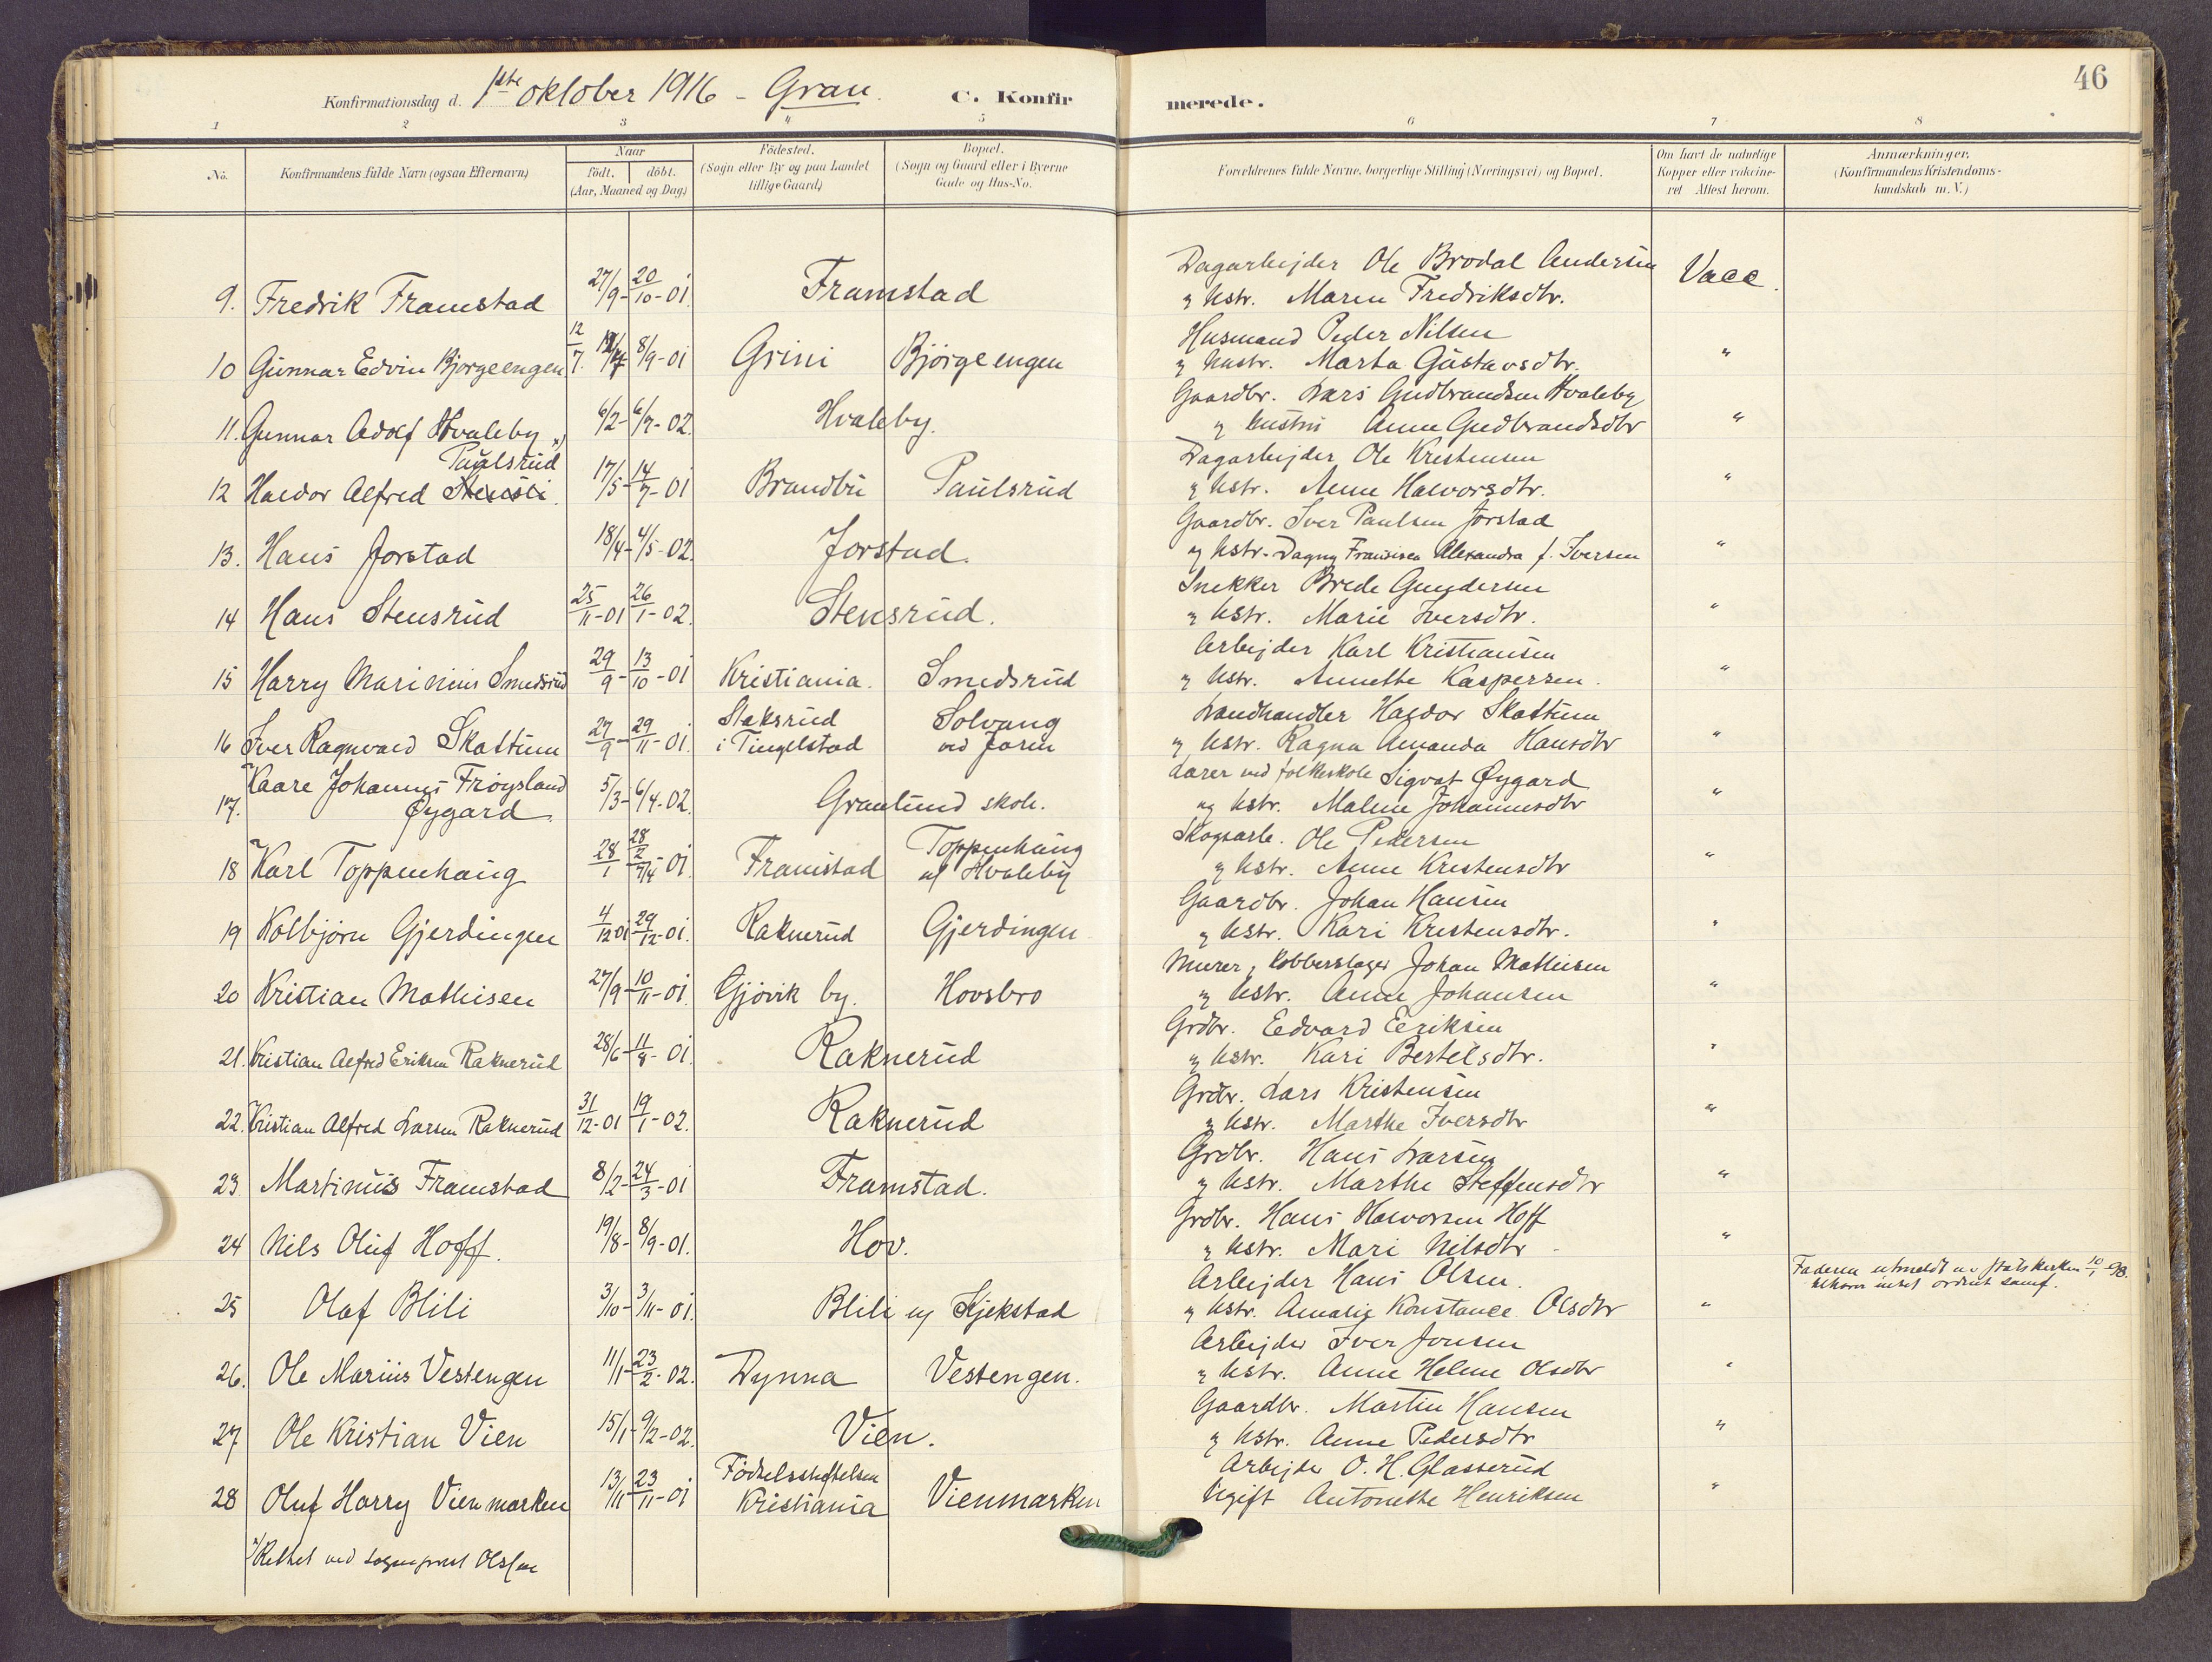 46
Konfirmationsdag d. 1ste oktober 1916 - Gran. C. Konfirmerede.
1 2 3 4 5 6 7 8
No. Konfirmandens fulde Navn (ogsaa Efternavn)
Naar født. døbt. (Aar, Maaned og Dag)
Fødested. (Sogn eller By og paa Landet tillige Gaard)
Bopæl. (Sogn og Gaard eller i Byerne Gade og Hus-No.
Forældrenes fulde Navne, borgerlige Stilling (Næringsvei) og Bopæl.
Om havt de naturlige Kopper eller vakcineret Attest herom.
Anmærkninger. (Konfirmandens Kristendomskundskab m. V.)
Dagarbejder Ole Brodal Andersen
9. Fredrik Framstad 27/9- 20/10-01. Framstad og hstr. Maren Fredriksdtr. Vacc.
Husmand Peder Nilsen
10 Gunnar Edvin Bjørgeengen 12/7. 8/9-01 Grini Bjørgeengen og hustr. Marta Gustavsdtr. "
Gaardbr. Lars Gudbrandsen Hvaleby
11. Gunnar Adolf Hvaleby 6/2- 6/7-02. Hvaleby. og hustru Anne Gudbrandsdtr "
Paulsrud Dagarbejder Ole Kristensen
12 Haldor Alfred 17/5- 14/7-01 Brandbu Paulsrud og hstr. Anne Halvorsdtr. "
Gaardbr. Iver Paulsen Jorstad
13. Hans Jorstad 18/4- 4/5-02. Jorstad. og hstr. Dagny Fransisca Alexandra f. Iversen "
Snekker Brede Gundersen
14 Hans Stensrud 25/11-01 26/1-02. Stensrud. og hstr. Marie Iversdtr. "
Arbejder Karl Kristiansen
15 Harry Marinius Smedsrud 29/9- 13/10-01 Kristiania. Smedsrud og hstr. Annette Kaspersen. "
Staksrud Solvang Landhandler Haldor Skattum
16 Iver Ragnvald Skattum 27/9- 29/11-01. i Tingelstad ved Jaren og hstr. Ragna Amanda Hansdtr "
Kaare Johannes Frøysland Lærer ved folkeskole Sigvat Øygard
17. Øygard. 5/3- 6/4-02. Granlund skole. og hstr. Malene Johannesdtr "
Toppenhaug Skogsarb. Ole Pedersen
18 Karl Toppenhaug 28/1 28/2 7/4-01. Framstad af Hvaleby og hstr. Anne Kristensdtr "
Gaardbr. Johan Hansen
19 Kolbjørn Gjerdingen 4/12 01 29/12-01. Raknerud Gjerdingen og hstr. Kari Kristensdtr. "
Murer, Kobberslager Johan Mathisen
20 Kristian Mathisen 27/9- 10/11-01. Gjøvik by. Hovsbro og hstr. Anne Johansen "
Grdbr. Edvard Eriksen
21. Kristian Alfred Eriksen Raknerud 28/6- 11/8-01. Raknerud og hstr. Kari Bertelsdtr. "
Grdbr. Lars Kristensen
22. Kristian Alfred Larsen Raknerud 31/12-01 19/1-02. Raknerud og hstr. Marthe Iversdtr "
Grdbr. Hans Larsen
23 Martinus Framstad 8/2- 24/3-01 Framstad. og hstr. Marthe Steffensdtr "
Grdbr. Hans Halvorsen Hoff
24 Nils Oluf Hoff. 19/8- 8/9-01. Hov. og hstr. Mari Nilsdtr - "
Arbejder Hans Olsen. Faderen utmeldt av statskirken 10/1-98.
25 Olaf Blili 3/10- 3/11-01. Blili og Skjekstad og hstr. Amalie Konstance Olsdtr " tilhører intet ordnet samf.
Arbejder Iver Jonsen
26. Ole Marius Vestengen 11/1- 23/2-02. Dynna Vestengen. og hstr. Anne Helene Olsdtr "
Gaardbr. Martin Hansen
27 Ole Kristian Vien 15/1- 9/2-02. Vien. og hstr. Anne Pedersdtr "
Fødselsstiftelsen Arbejder O. H. Glasserud
28 Oluf Harry Vienmarken 13/11 23/11-01 Kristiania Vienmarken Ugift Antonette Henriksen "
Rettet ved sogneprest Olsen